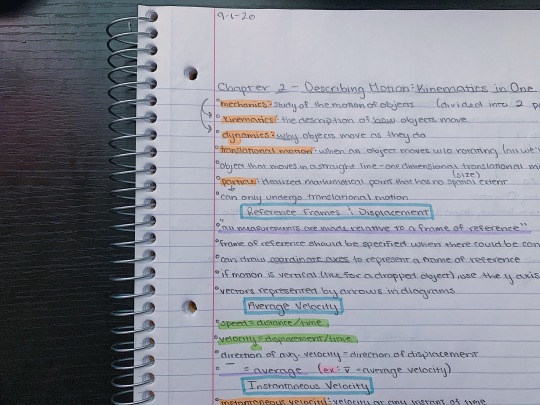 9-1-20
Chapter 2 - Describing Motion: Kinematics in One
°mechanics: study of the motion of objects (divided into 2 p
°kinematics: the description of how objects move
°dynamics: why objects move as they do
°translational motion: when an object moves w/o rotating
°object that moves in a straight line - one dimensional translational m
(size)
°particle: idealized mathematical point that has no spatial extent
°can only undergo translational motion
Reference Frames & Displacement
°"all measurements are made relative to a frame of reference"
°frame of reference should be specified when there could be con
°can draw coordinate axes to represent a frame of reference
°if motion is vertical (like for a dropped object), use the y axis
°vectors represented by arrows in diagrams
Average Velocity
°speed = distance/time
°velocity = displacement/time
°direction of avg. velocity = direction of displacement
° ‾ = average (ex: v̅ = average velocity)
Instantaneous Velocity
°instantaneous velocity: velocity at any instant of time